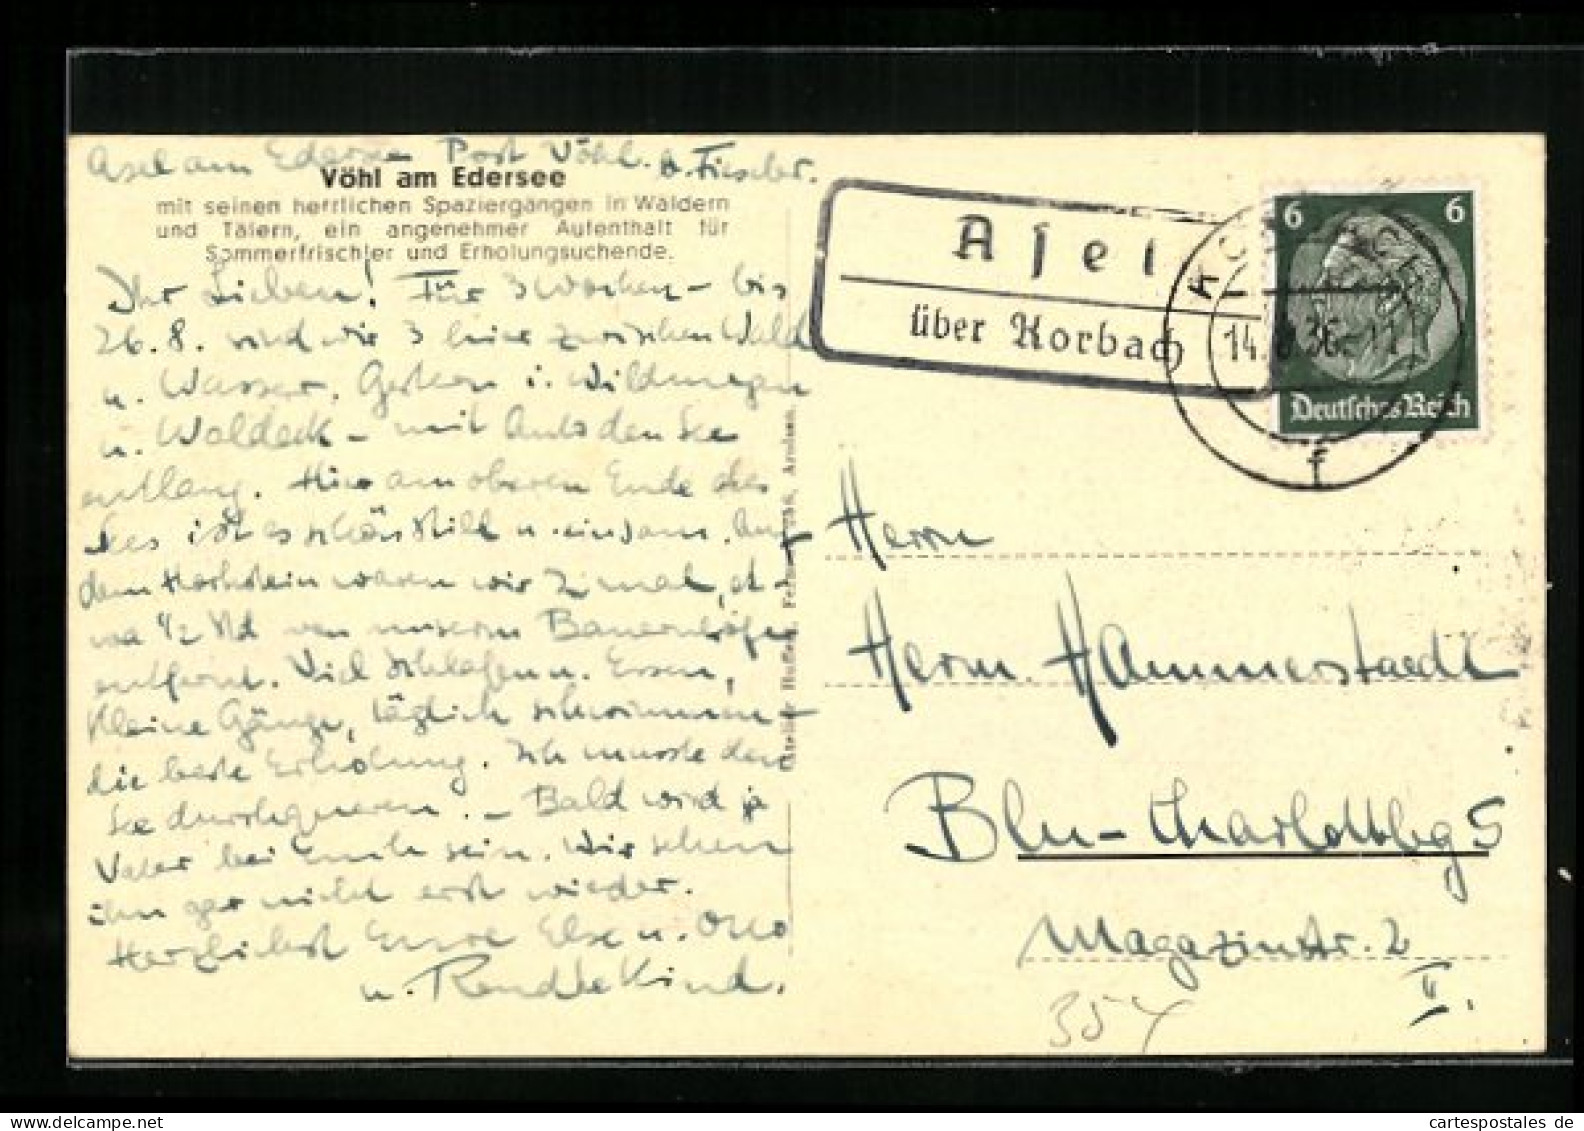 Asel am Edersee Post Vöhl. b. Fiescher.
Vöhl am Edersee
mit seinen herrlichen Spaziergängen in Wäldern
und Tälern, ein angenehmer Aufenthalt für
Sommerfrischler und Erholungsuchende.
Ihr Lieben! Für 3 Wochen – bis
26. 8. sind wir 3 hier zwischen Wald
u. Wasser. Gestern i. Wildungen
u. Waldeck – mit Auto den See
entlang. Hier am oberen Ende des
Sees ist es schön still u. einsam. Auf
dem Hochstein waren wir 2 mal, et-
wa 1/2 Std von unserm Bauernhofe
entfernt. Viel Schlafen u. Essen,
kleine Gänge, täglich schwimmen –
die beste Erholung. Ich musste den
See durchqueren. – Bald wird ja
Vater bei Euch sein. Wir sehen
ihn gar nicht erst wieder.
Herzlichst Eure Else u. Otto
u. Kind.
Atelier Arolsen.
Asel
über Korbach
KORBACH
14. 8. 36. 11
f
6 6
Deutsches Reich
Herrn
Herm. Hammerstaedt
Bln-Charlottbg 5
Magazinstr. 2
II.
354
cartespostales de
www.delcampe.net